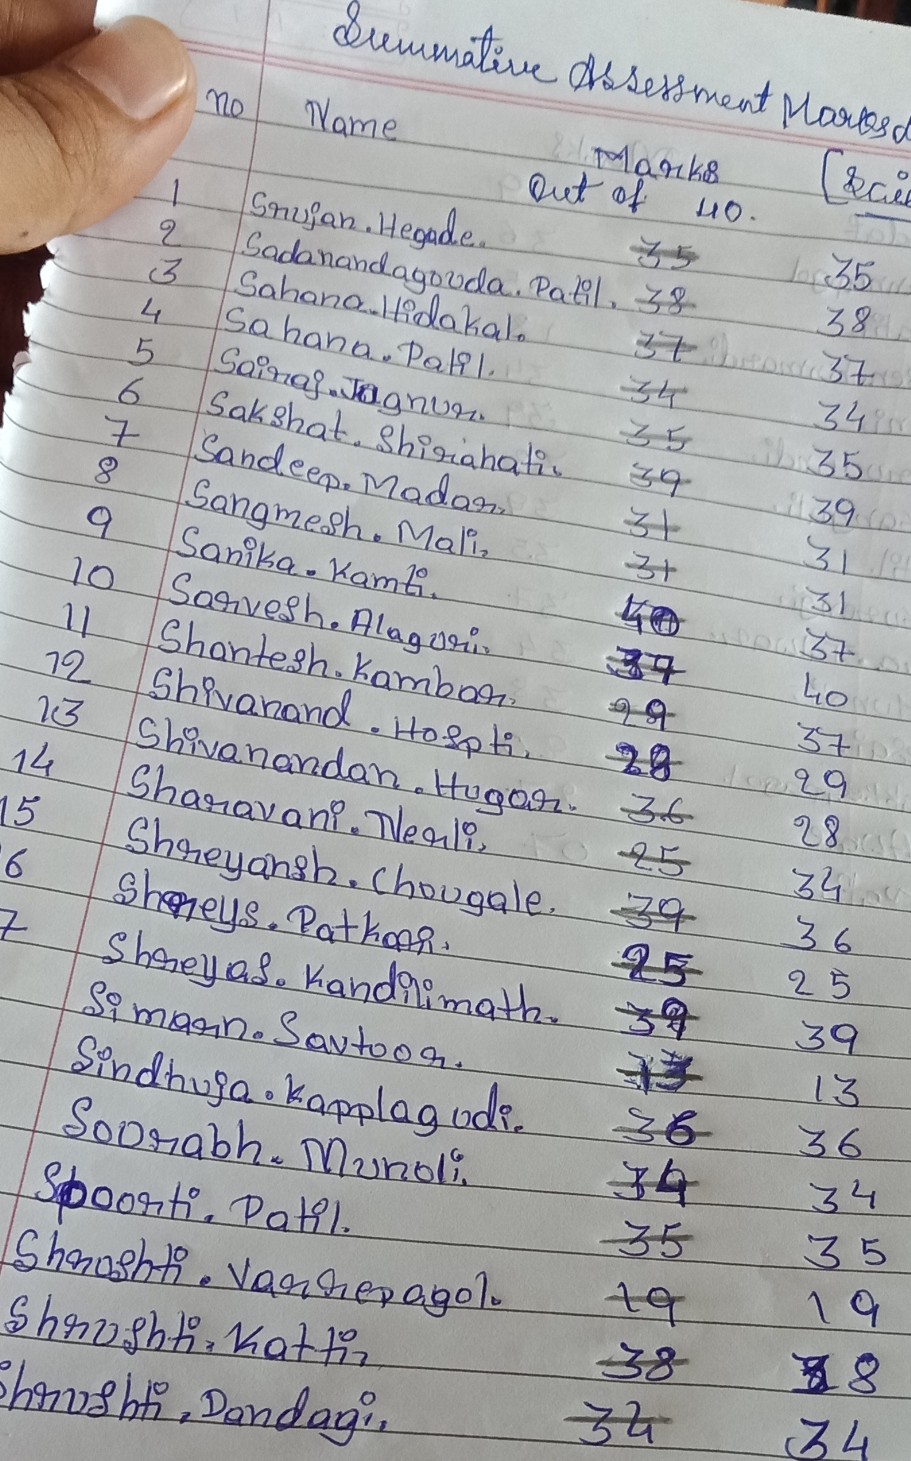 Summative Assessment Marks
no Name Marks
Out of 40.
1 Srujan. Hegade. 35 35
2 Sadanandagouda. Patil. 38 38
3 Sahana. Hidakal. 37 37
4 Sahana. Patil. 34 34
5 Sairaj. Jagnur. 35 35
6 Sakshat. Shirahati. 39 39
7 Sandeep. Madar. 31 31
8 Sangmesh. Mali, 31 31
9 Sanika. Kamti. 40 37
10 Sarvesh. Alaguri. 37 40
11 Shantesh. Kambar. 29 37
12 Shivanand. Hospti. 28 29
13 Shivanandan. Hugar. 36 28
14 Sharavani. Nerli, 25 34
15 Shreyansh. Chougale. 39 36
6 Shreys. Patkar. 25 25
7 Shreyas. Kandilimath. 39 39
Simarn. Savtoor. 13 13
Sindhuja. Kapplagudi. 36 36
Soorabh. Munoli. 34 34
Spoorti. Patil. 35 35
Shrashti. Vannepagol. 19 19
Shrushti. Katti, 38 38
Shrushti, Dandagi, 34 34